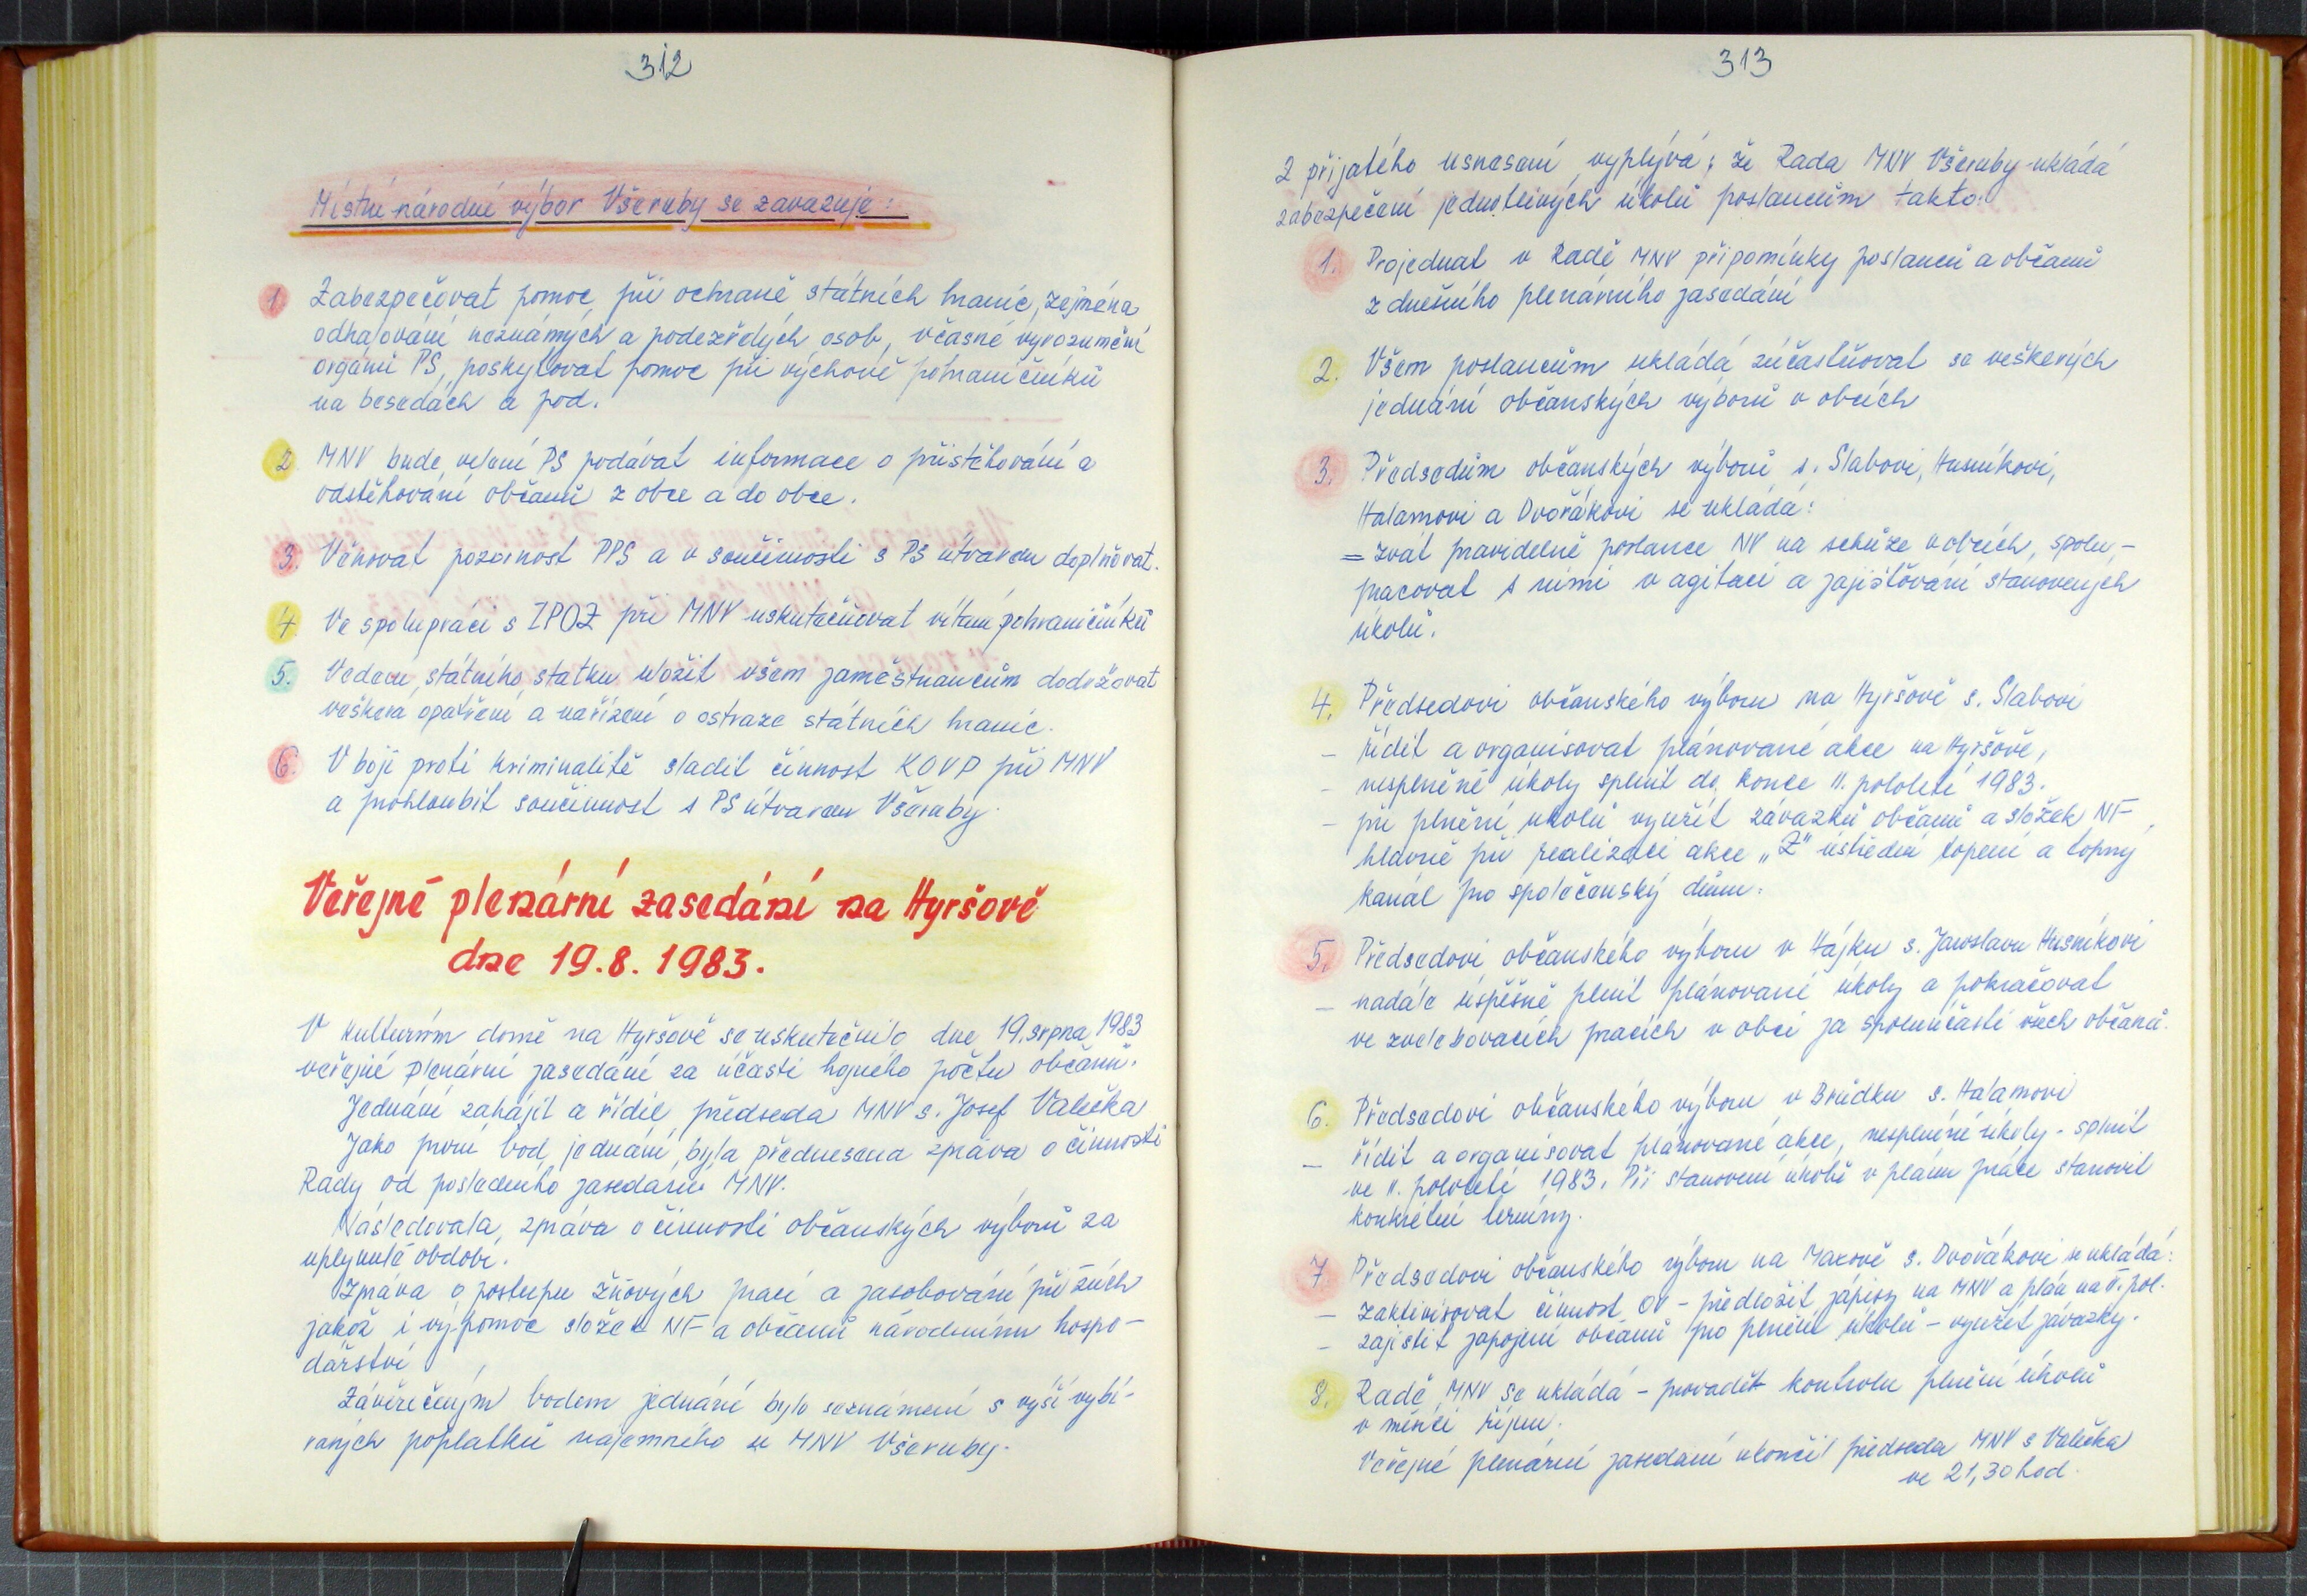 312
Místní národní výbor Všeruby se zavazuje:
1. Zabezpečovat pomoc při ochraně státních hranic, zejména
odhalování neznámých a podezřelých osob, včasné vyrozumění
orgánů PS, poskytovat pomoc při výchově pohraničníků
na besedách a pod.
2 MNV bude velení PS podávat informace o přistěhování a
odstěhování občanů z obce a do obce.
3. Věnovat pozornost PPS a v součinnosti s PS útvarem doplňovat.
4. Ve spolupráci s ZPOZ při MNV uskutečňovat vítání pohraničníků
5. Vedení státního statku uložit všem zaměstnancům dodržovat
veškerá opatření a nařízení o ostraze státních hranic.
6. V boji proti kriminalitě sladit činnost KOVP při MNV
a prohloubit součinnost s PS útvarem Všeruby.
Veřejné plenární zasedání na Hyršově
dne 19.8.1983.
V kulturním domě na Hyršově se uskutečnilo dne 19.srpna 1983
veřejné plenární zasedání za účasti hojného počtu občanů.
Jednání zahájil a řídil předseda MNV s. Josef Valečka
Jako první bod jednání byla přednesena zpráva o činnosti
Rady od posledního zasedání MNV.
Následovala zpráva o činnosti občanských výborů za
uplynulé období.
Zpráva o postupu žňových prací a zásobování při žních
jakož i výpomoc složek NF a občanů národnímu hospo-
dářství
Závěrečným bodem jednání bylo seznámení s výší vybí-
raných poplatků nájemného u MNV Všeruby.
313
Z přijatého usnesení vyplývá, že Rada MNV Všeruby ukládá
zabezpečení jednotlivých úkolů poslancům takto:
1. Projednat v Radě MNV připomínky poslanců a občanů
z dnešního plenárního zasedání
2. Všem poslancům ukládá zúčastňovat se veškerých
jednání občanských výborů v obcích
3. Předsedům občanských výborů s. Slabovi, Husníkovi,
Halamovi a Dvořákovi se ukládá:
= zvát pravidelně poslance NV na schůze v obcích, spolu-
pracovat s nimi v agitaci a zajišťování stanovených
úkolů.
4. Předsedovi občanského výboru na Hyršově s. Slabovi
- řídit a organisovat plánované akce na Hyršově,
- nesplněné úkoly splnit do konce II. pololetí 1983.
- při plnění úkolů využít závazků občanů a složek NF,
hlavně při realizaci akce „Z" ústřední topení a topný
kanál pro společenský dům.
5. Předsedovi občanského výboru v Hájku s. Jaroslavu Husníkovi
- nadále úspěšně plnit plánované úkoly a pokračovat
ve zvelebovacích pracích v obci za spoluúčasti všech občanů.
6. Předsedovi občanského výboru v Brůdku s. Halamovi
- řídit a organisovat plánované akce, nesplněné úkoly - splnit
ve II. pololetí 1983. Při stanovení úkolů v plánu práce stanovit
konkrétní termíny.
7. Předsedovi občanského výboru na Maxově s. Dvořákovi se ukládá:
- zaktivisovat činnost OV - předložit zápisy na MNV a plán na II. pol.
- zajistit zapojení občanů pro plnění úkolů - využít závazky.
8. Radě MNV se ukládá - provadět kontrolu plnění úkolů
v měsíci říjnu.
Veřejné plenární zasedání ukončil předseda MNV s Valečka
ve 21,30 hod.